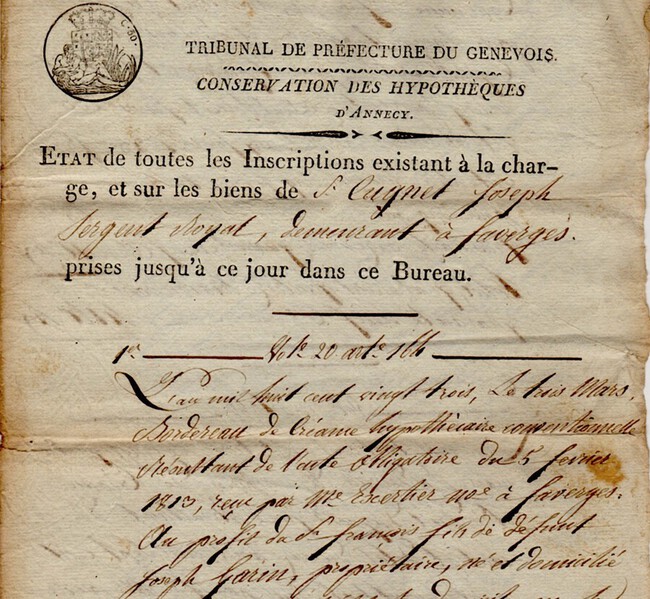 C. 80.
TRIBUNAL DE PRÉFECTURE DU GENEVOIS.
CONSERVATION DES HYPOTHÈQUES
D'ANNECY.
ETAT de toutes les Inscriptions existant à la char-
ge, et sur les biens de Sr Cuynet Joseph
Sergent Royal, demeurant à faverges.
prises jusqu'à ce jour dans ce Bureau.
1er Vol.e 20 art.e 166
L'an mil huit cent vingt trois, Le trois Mars,
Bordereau de Créance hypothécaire conventionnelle
Résultant de l'acte obligatoire du 5 fevrier
1813, reçu par Me Exertier noe à faverges.
Au profit du Sr françois fils de défunt
Joseph Garin, propriétaire, né et domicilié